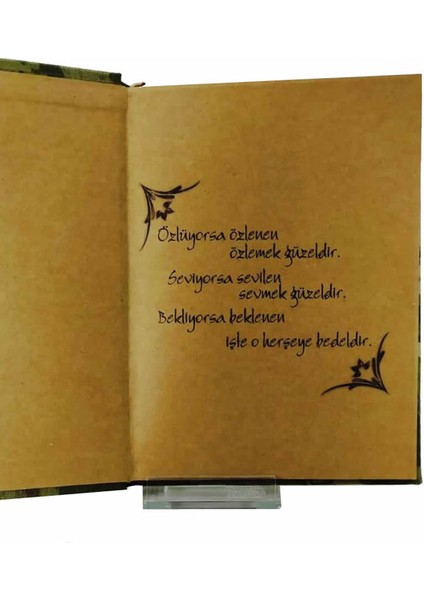 Özlüyorsa özlenen
özlemek güzeldir.
Seviyorsa sevilen
sevmek güzeldir.
Bekliyorsa beklenen
işte o herşeye bedeldir.